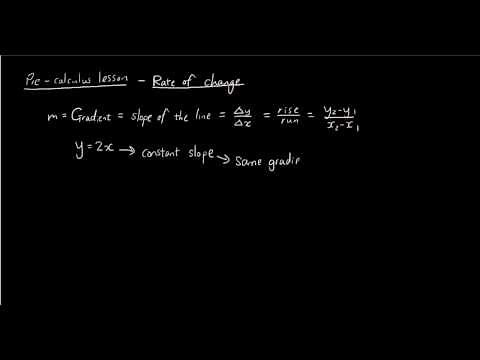 Pre-calculus lesson - Rate of change
m = Gradient = slope of the line = Δy/Δx = rise/run = y₂-y₁/x₂-x₁
y = 2x → constant slope → same gradie